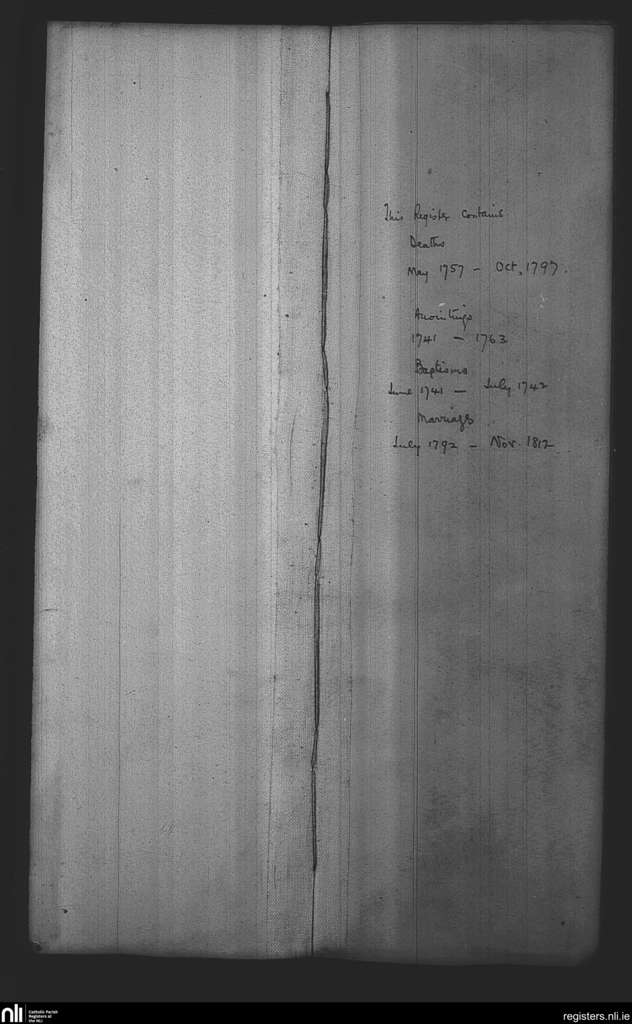 This Register Contains
Deaths
May 1757 - Oct, 1797.
Anointings
1741 - 1763
Baptisms
June 1741 - July 1742
Marriages
July 1792 - Nov. 1812
nli
Catholic Parish
Registers at
the NLI
registers.nli.ie